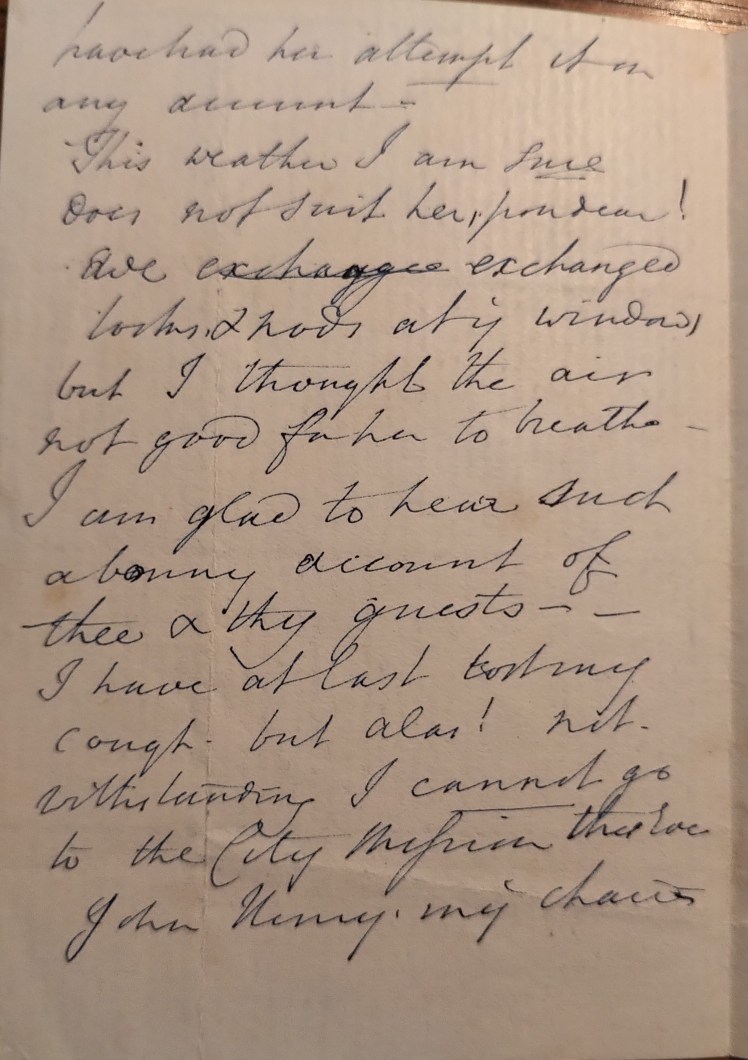 have had her attempt it on
any account -
This weather I am sure
does not suit her, poor dear!
We exchagge exchanged
looks & nods at ye window,
but I thought the air
not good for her to breathe -
I am glad to hear such
a bonny account of
thee & thy guests - -
I have at last lost my
cough - but alas! not-
withstanding I cannot go
to the City Mission this Eve
John Henry. my